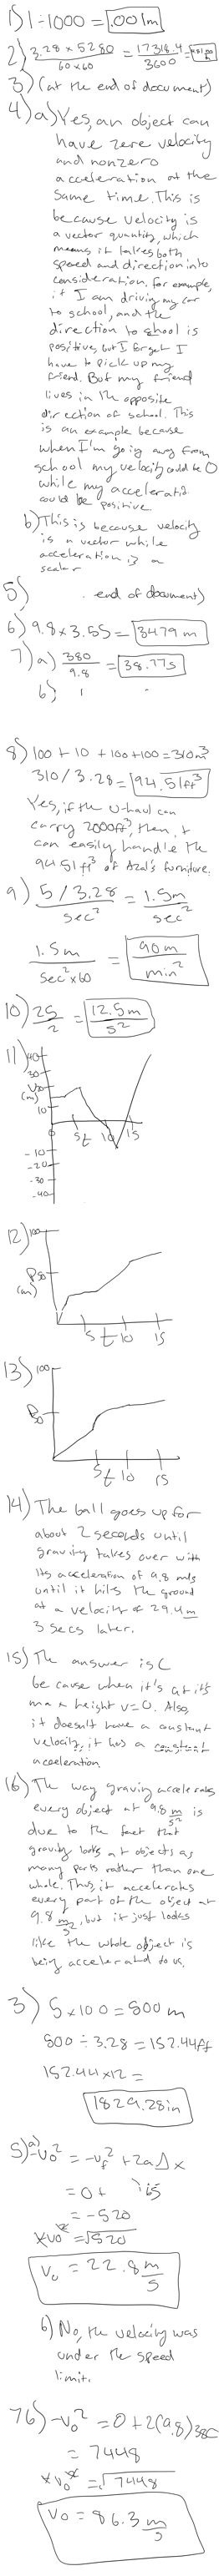 1) 1÷1000 = .001m
2) 3.28 × 5280 / 60×60 = 17318.4 / 3600 =
3) (at the end of document)
4) a) Yes, an object can
have zero velocity
and nonzero
acceleration at the
same time. This is
because velocity is
a vector quantity, which
means it takes both
speed and direction into
consideration. For example,
if I am driving my car
to school, and the
direction to school is
positive, but I forgot I
have to pick up my
friend. But my friend
lives in the opposite
direction of school. This
is an example because
when I'm going away from
school my velocity could be 0
while my acceleratio
could be positive
b) This is because velocity
is a vector while
acceleration is a
scalar
5) end of document)
6) 9.8 × 3.55 = 3479 m
7) a) 380 / 9.8 = 38.77s
b)
8) 100 + 10 + 100+100 = 310m³
310 / 3.28 = 94.51ft³
Yes, if the U-haul can
carry 2000ft³, then it
can easily handle the
94.51ft³ of Azal's furniture.
9) 5 / 3.28 / sec² = 1.5m / sec²
1.5m / sec² × 60 = 90m / min²
10) 25 / 2 = 12.5m / s²
11) 40
30
V20
(m)
10
0
5 t 10 15
-10
-20
-30
-40
12) 100
P50
(m)
5 t 10 15
13) 100
P50
5 t 10 15
14) The ball goes up for
about 2 seconds until
gravity takes over with
its acceleration of 9.8 m/s
until it hits the ground
at a velocity of 29.4 m
3 secs later.
15) The answer is C
because when it's at it's
max height v=0. Also,
it doesn't have a constant
velocity, it has a constant
acceleration.
16) The way gravity accelerates
every object at 9.8 m/s² is
due to the fact that
gravity looks at objects as
many parts rather than one
whole. Thus, it accelerates
every part of the object at
9.8 m/s², but it just looks
like the whole object is
being accelerated to us.
3) 5 × 100 = 500 m
500 ÷ 3.28 = 152.44ft
152.44 × 12 =
1829.28in
5) a) -v₀² = -vf² + 2aΔx
= 0 + 65
= -520
v₀ = √520
v₀ = 22.8 m/s
b) No, the velocity was
under the speed
limit.
7b) -v₀² = 0 + 2(9.8)380
= 7448
v₀ = √7448
v₀ = 86.3 m/s